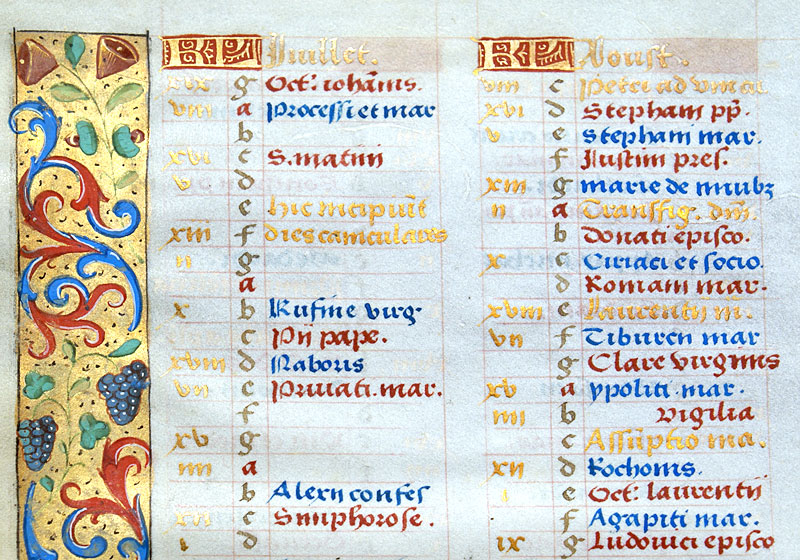 KL Juillet.
xix g Oct. iohanis.
viii a Processi et mar
b
xvi c S. martini
v d
e Hic incipiut
xiii f dies caniculares
ii g
a
x b Rufine virg
c Pij pape.
xviii d Naboris
vii e Privati. mar.
f
xv g
iiii a
b Alexii confes
xii c Simphorose.
i d
KL Aoust.
viii c Petri ad vincu
xvi d Stephani pp.
v e Stephani mar.
f Justini pres.
xiii g marie de niuibz
ii a Transfig. dni.
b Donati episco.
x c Ciriaci et socio.
d Romani mar.
xviii e Laurentii m.
vii f Tiburcii mar
g Clare virginis
xv a ypoliti. mar.
iiii b vigilia
c Assuptio ma.
xii d Rochonis.
i e Oct. laurentii
f Agapiti mar.
ix g Ludovici episco